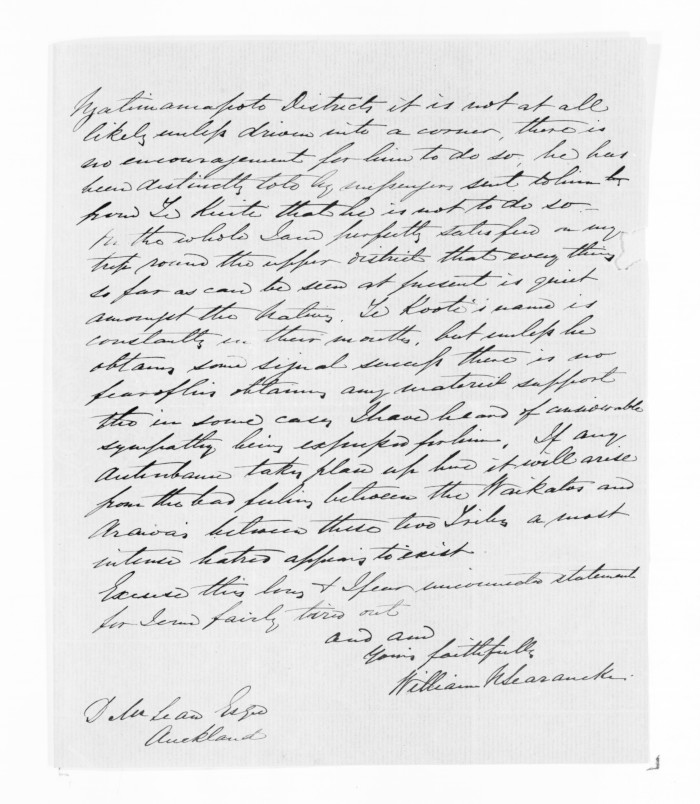 Ngatimaniapoto Districts it is not at all
likely unless driven into a corner, there is
no encouragement for him to do so, he has
been distinctly told by messengers sent to him by
from Te Kuite that he is not to do so –
On the whole I am perfectly satisfied on my
trip round the upper district that every thing
so far as can be seen at present is quiet
amongst the Natives. Te Kooti's name is
constantly in their mouths, but unless he
obtains some signal success there is no
fear of his obtaining any material support
tho in some cases I have heard of considerable
sympathy being expressed for him. If any
disturbance takes place up here it will arise
from the bad feeling between the Waikatos and
Arawas between these two Tribes a most
intense hatred appears to exist.
Excuse this long & I fear unconnected statement
for I am fairly tired out
and am
Yours faithfully
William N Searancke.
D McLean Esqre
Auckland